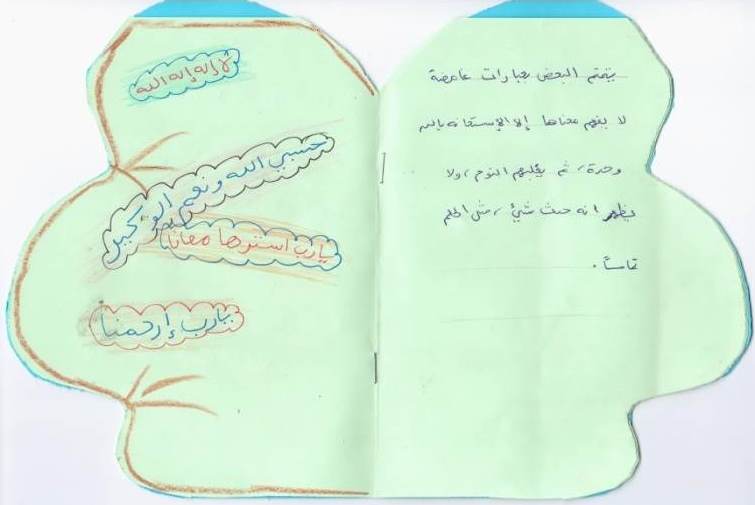 يتمتم البعض بعبارات غامضة
لا يفهم معناها إلا الإستعانه بالله
وحدة، ثم يغلبهم النوم، ولا
يظهر انه حدث شيئ، مثل الحلم
تماماً.
لا إله إله الله
حسبي الله ونعم الوكيل
يارب استرها معانا
يارب إرحمنا